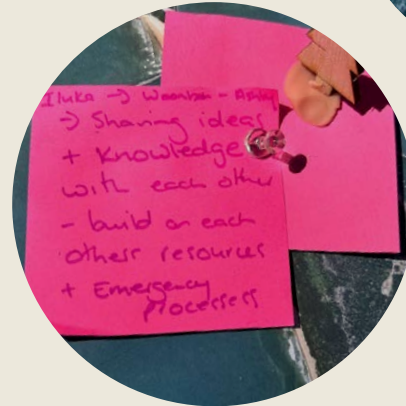 Iluka → Woombah - Ashby
→ Sharing ideas
+ Knowledge
with each other
- build on each
others resources
+ Emergency
processers